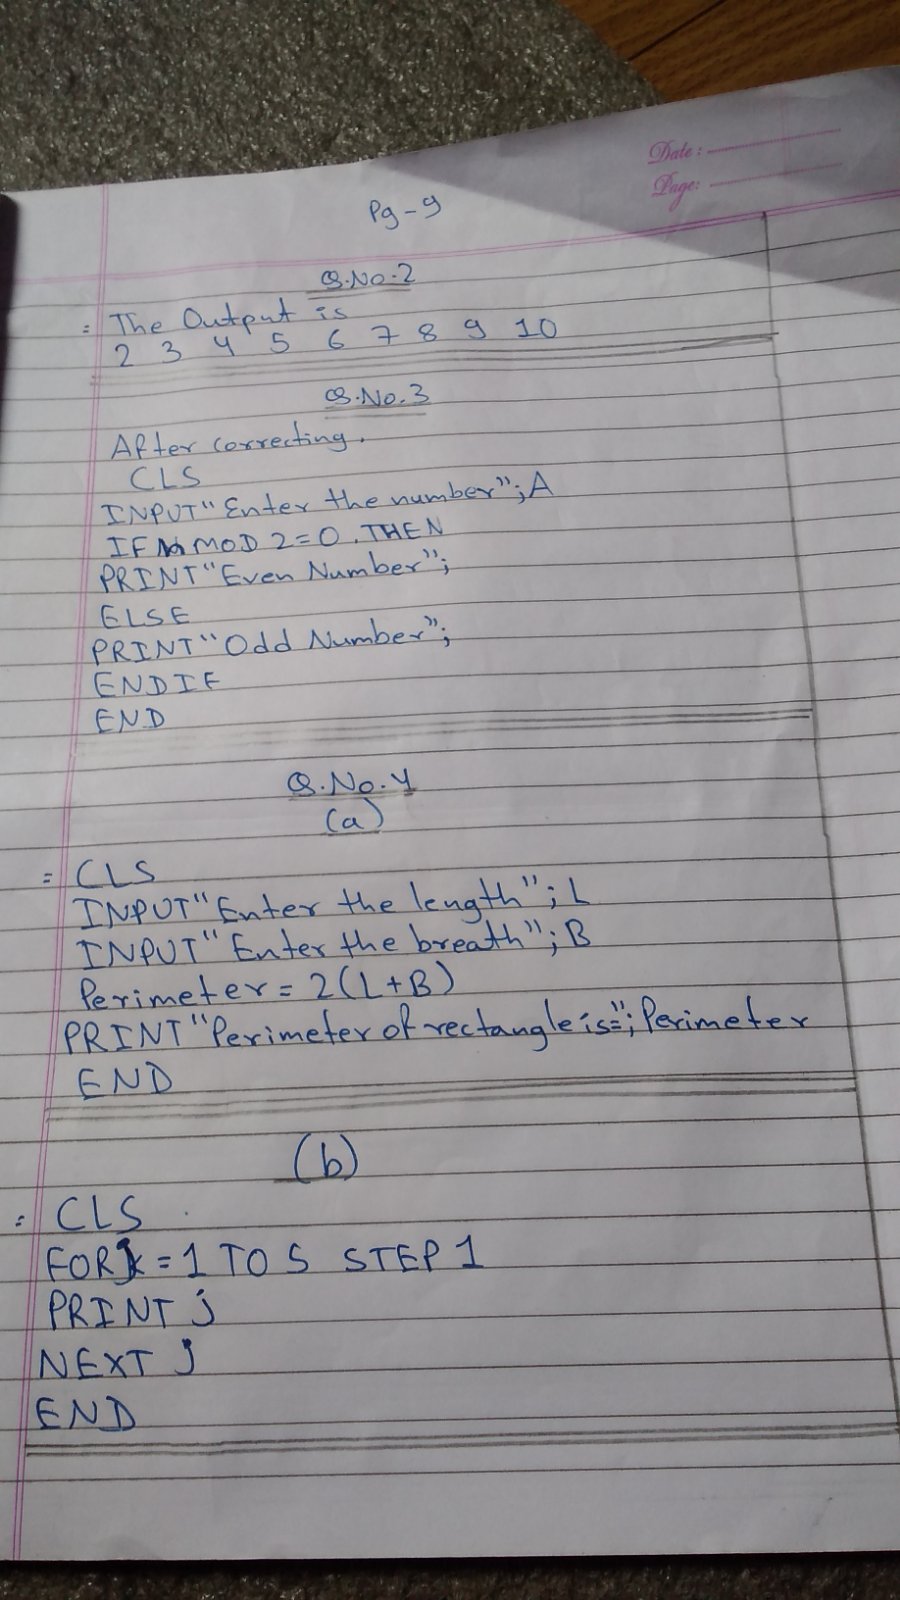 Date:
Page:
Pg-9
Q.No.2
= The Output is
2 3 4 5 6 7 8 9 10
Q.No.3
After correcting.
CLS
INPUT "Enter the number"; A
IF MOD 2=0 THEN
PRINT "Even Number";
ELSE
PRINT "Odd Number";
ENDIF
END
Q.No.4
(a)
= CLS
INPUT "Enter the length"; L
INPUT "Enter the breath"; B
Perimeter = 2(L+B)
PRINT "Perimeter of rectangle is="; Perimeter
END
(b)
= CLS
FOR = 1 TO 5 STEP 1
PRINT j
NEXT j
END